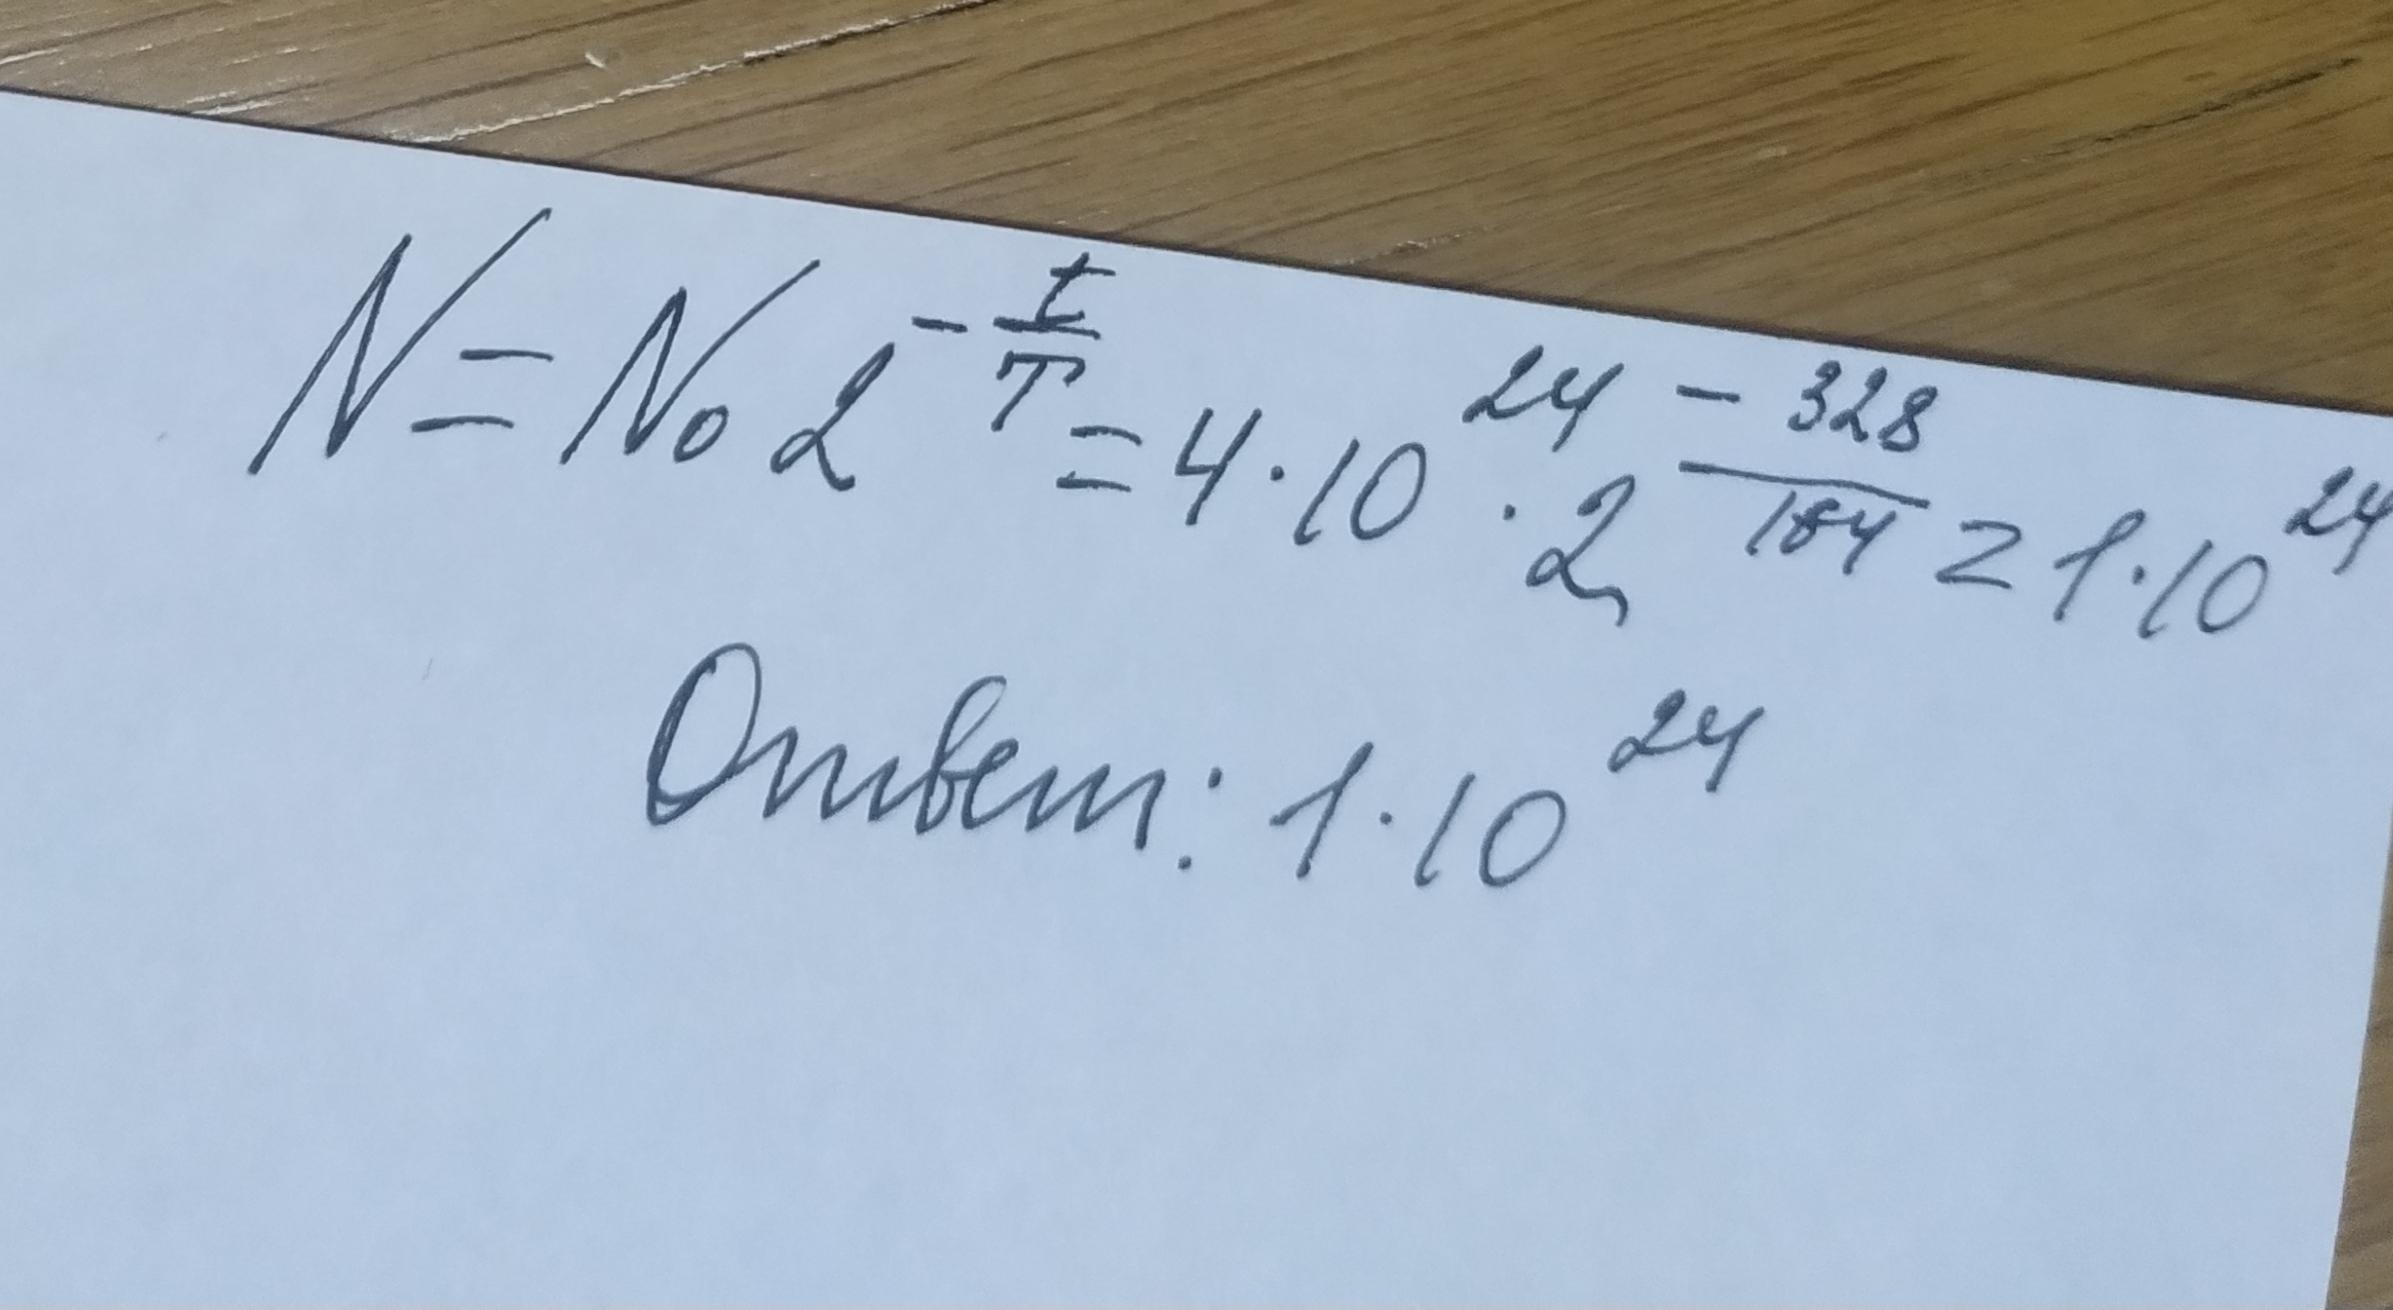 N = N₀ 2^(-t/T) = 4·10^24 · 2^(-328/164) = 1·10^24
Ответ: 1·10^24